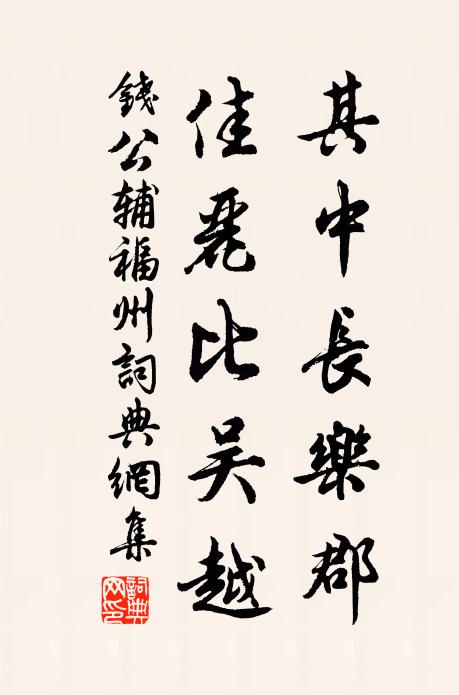 其中長樂郡
佳麗比吳越
錢公辅福州詞典網集
詞典网印